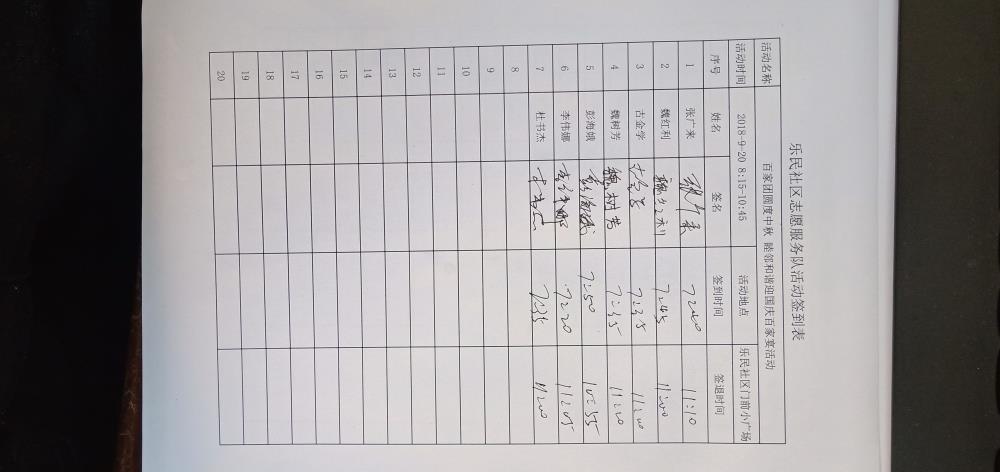 乐民社区志愿服务队活动签到表
活动名称 百家团圆度中秋 睦邻和谐迎国庆百家宴活动
活动时间 2018-9-20 8:15-10:45 活动地点 乐民社区门前小广场
序号 姓名 签名 签到时间 签退时间
1 张广来 张广来 7:40 11:10
2 魏红利 魏红利 7:45 11:00
3 古金学 古金学 7:35 11:00
4 魏树芳 魏树芳 7:35 11:20
5 彭海娥 彭海娥 7:50 10:55
6 李伟娜 李伟娜 7:20 11:05
7 杜书杰 杜书杰 7:35 11:00
8
9
10
11
12
13
14
15
16
17
18
19
20